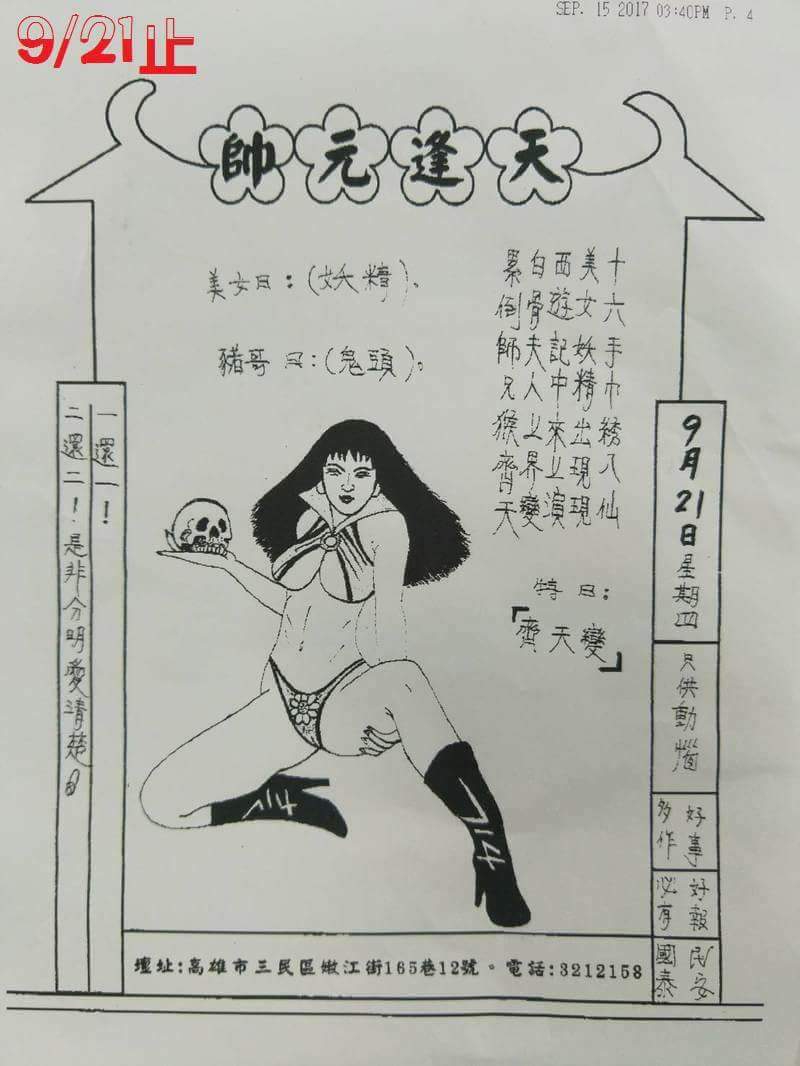 SEP. 15 2017 03:40PM P. 4
9/21止
天逢元帥
美女曰：(妖精)。
豬哥曰：(鬼頭)。
十六手巾绣八仙
美女妖精出現現
西遊記中來上演
白骨夫人上界變
累倒師兄猴齊天
特曰：
「齊天變」
9月21日星期四
只供動惱
好事多作
好報必有
民安國泰
一還一！
二還二！是非分明愛清楚
714
714
壇址:高雄市三民區嫩江街165巷12號。電話:3212158